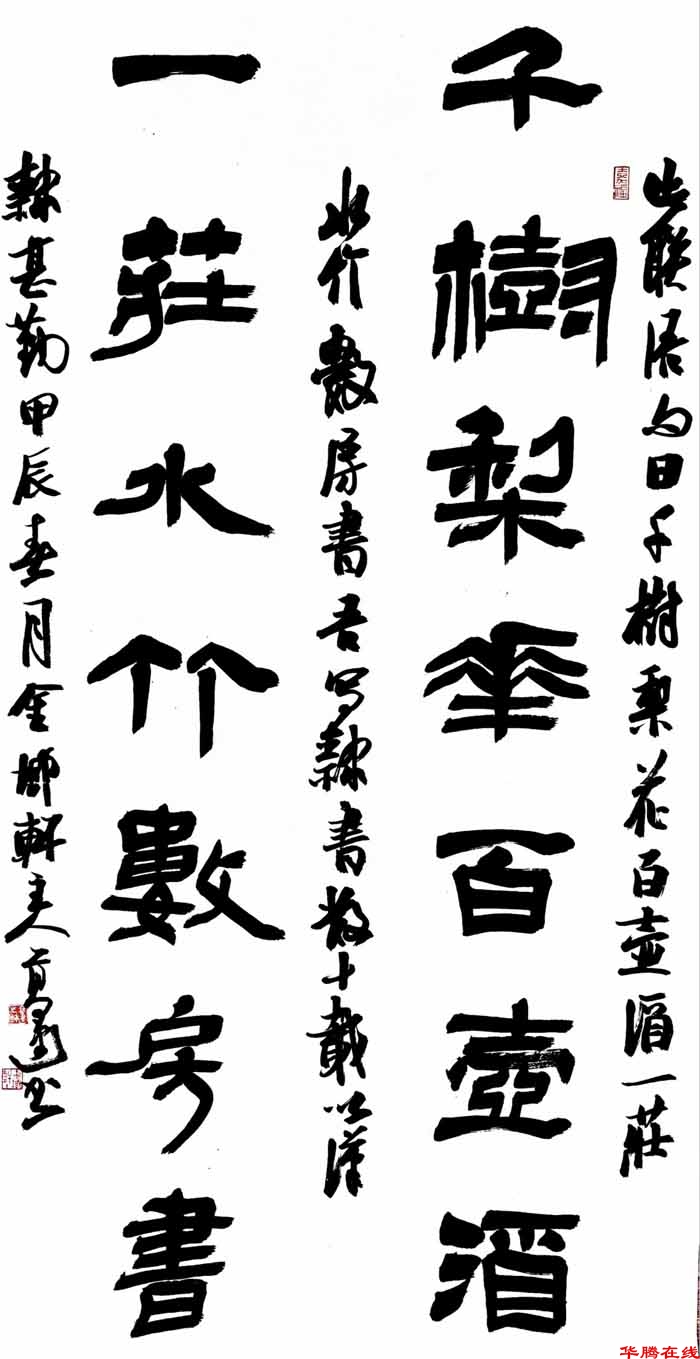 联语句曰千樹梨花百壺酒一莊
千樹梨華百壺酒
水竹數房書吾写隸書數十載以漢
一莊水竹數房書
隸甚勤甲辰春月金軒主人书
华腾在线